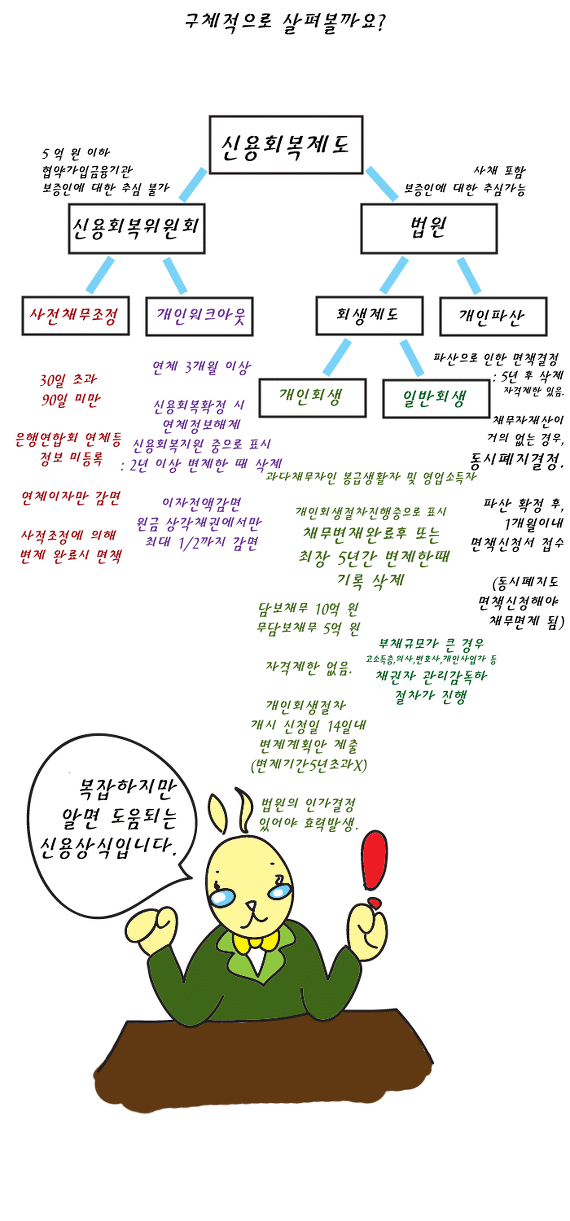 구체적으로 살펴볼까요?
신용회복제도
5억 원 이하
협약가입금융기관
보증인에 대한 추심 불가
사채 포함
보증인에 대한 추심가능
신용회복위원회
법원
사전채무조정
개인워크아웃
회생제도
개인파산
개인회생
일반회생
30일 초과
90일 미만
은행연합회 연체등
정보 미등록
연체이자만 감면
사적조정에 의해
변제 완료시 면책
연체 3개월 이상
신용회복확정 시
연체정보해제
신용회복지원 중으로 표시
: 2년 이상 변제한 때 삭제
이자전액감면
원금 상각채권에서만
최대 1/2까지 감면
과다채무자인 봉급생활자 및 영업소득자
개인회생절차진행중으로 표시
채무변재완료후 또는
최장 5년간 변제한때
기록 삭제
담보채무 10억 원
무담보채무 5억 원
자격제한 없음.
개인회생절차
개시 신청일 14일내
변제계획안 제출
(변제기간5년초과X)
법원의 인가결정
있어야 효력발생.
부채규모가 큰 경우
고소득층,의사,변호사,개인사업가 등
채권자 관리감독하
절차가 진행
파산으로 인한 면책결정
: 5년 후 삭제
자격제한 있음.
채무자재산이
거의 없는 경우,
동시폐지결정.
파산 확정 후,
1개월이내
면책신청서 접수
(동시폐지도
면책신청해야
채무면제 됨)
복잡하지만
알면 도움되는
신용상식입니다.